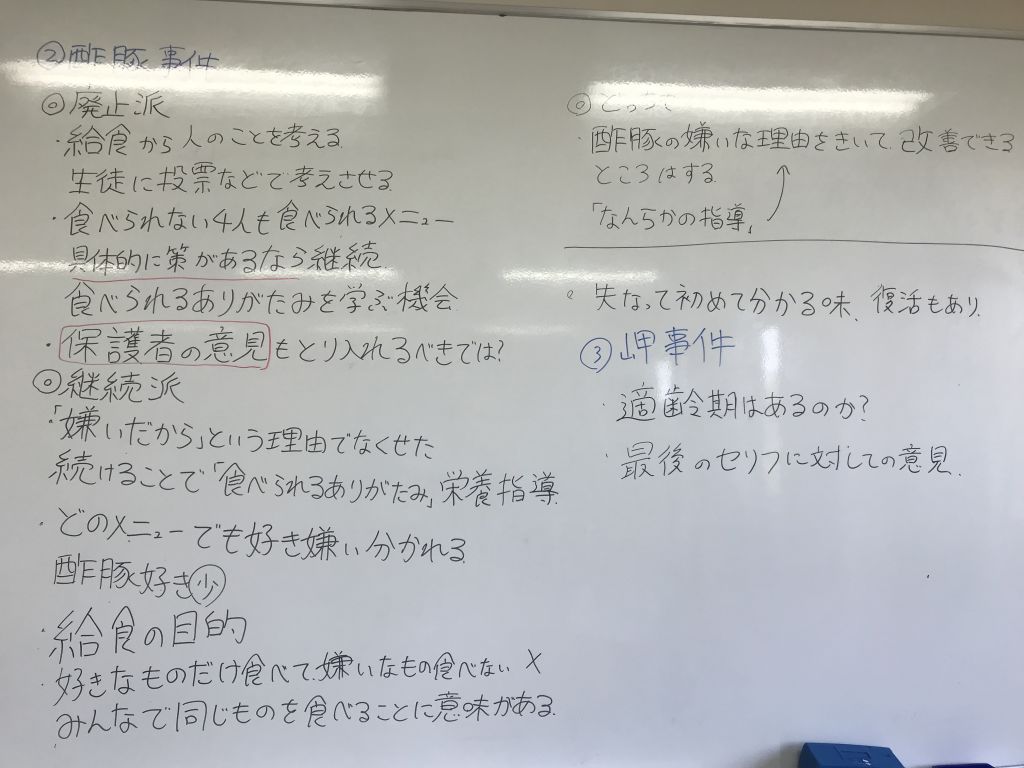 ②酢豚事件
◎廃止派
・給食から人のことを考える
生徒に投票などで考えさせる
・食べられない4人も食べられるメニュー
具体的に策があるなら継続
食べられるありがたみを学ぶ機会
・保護者の意見もとり入れるべきでは?
◎継続派
・「嫌いだから」という理由でなくせた
続けることで「食べられるありがたみ」栄養指導
・どのメニューでも好き嫌い分かれる
酢豚好き少
・給食の目的
・好きなものだけ食べて、嫌いなもの食べない ×
みんなで同じものを食べることに意味がある
◎
・酢豚の嫌いな理由をきいて、改善できる
ところはする
「なんらかの指導」
・失なって初めて分かる味、復活もあり
③岬事件
・適齢期はあるのか?
・最後のセリフに対しての意見